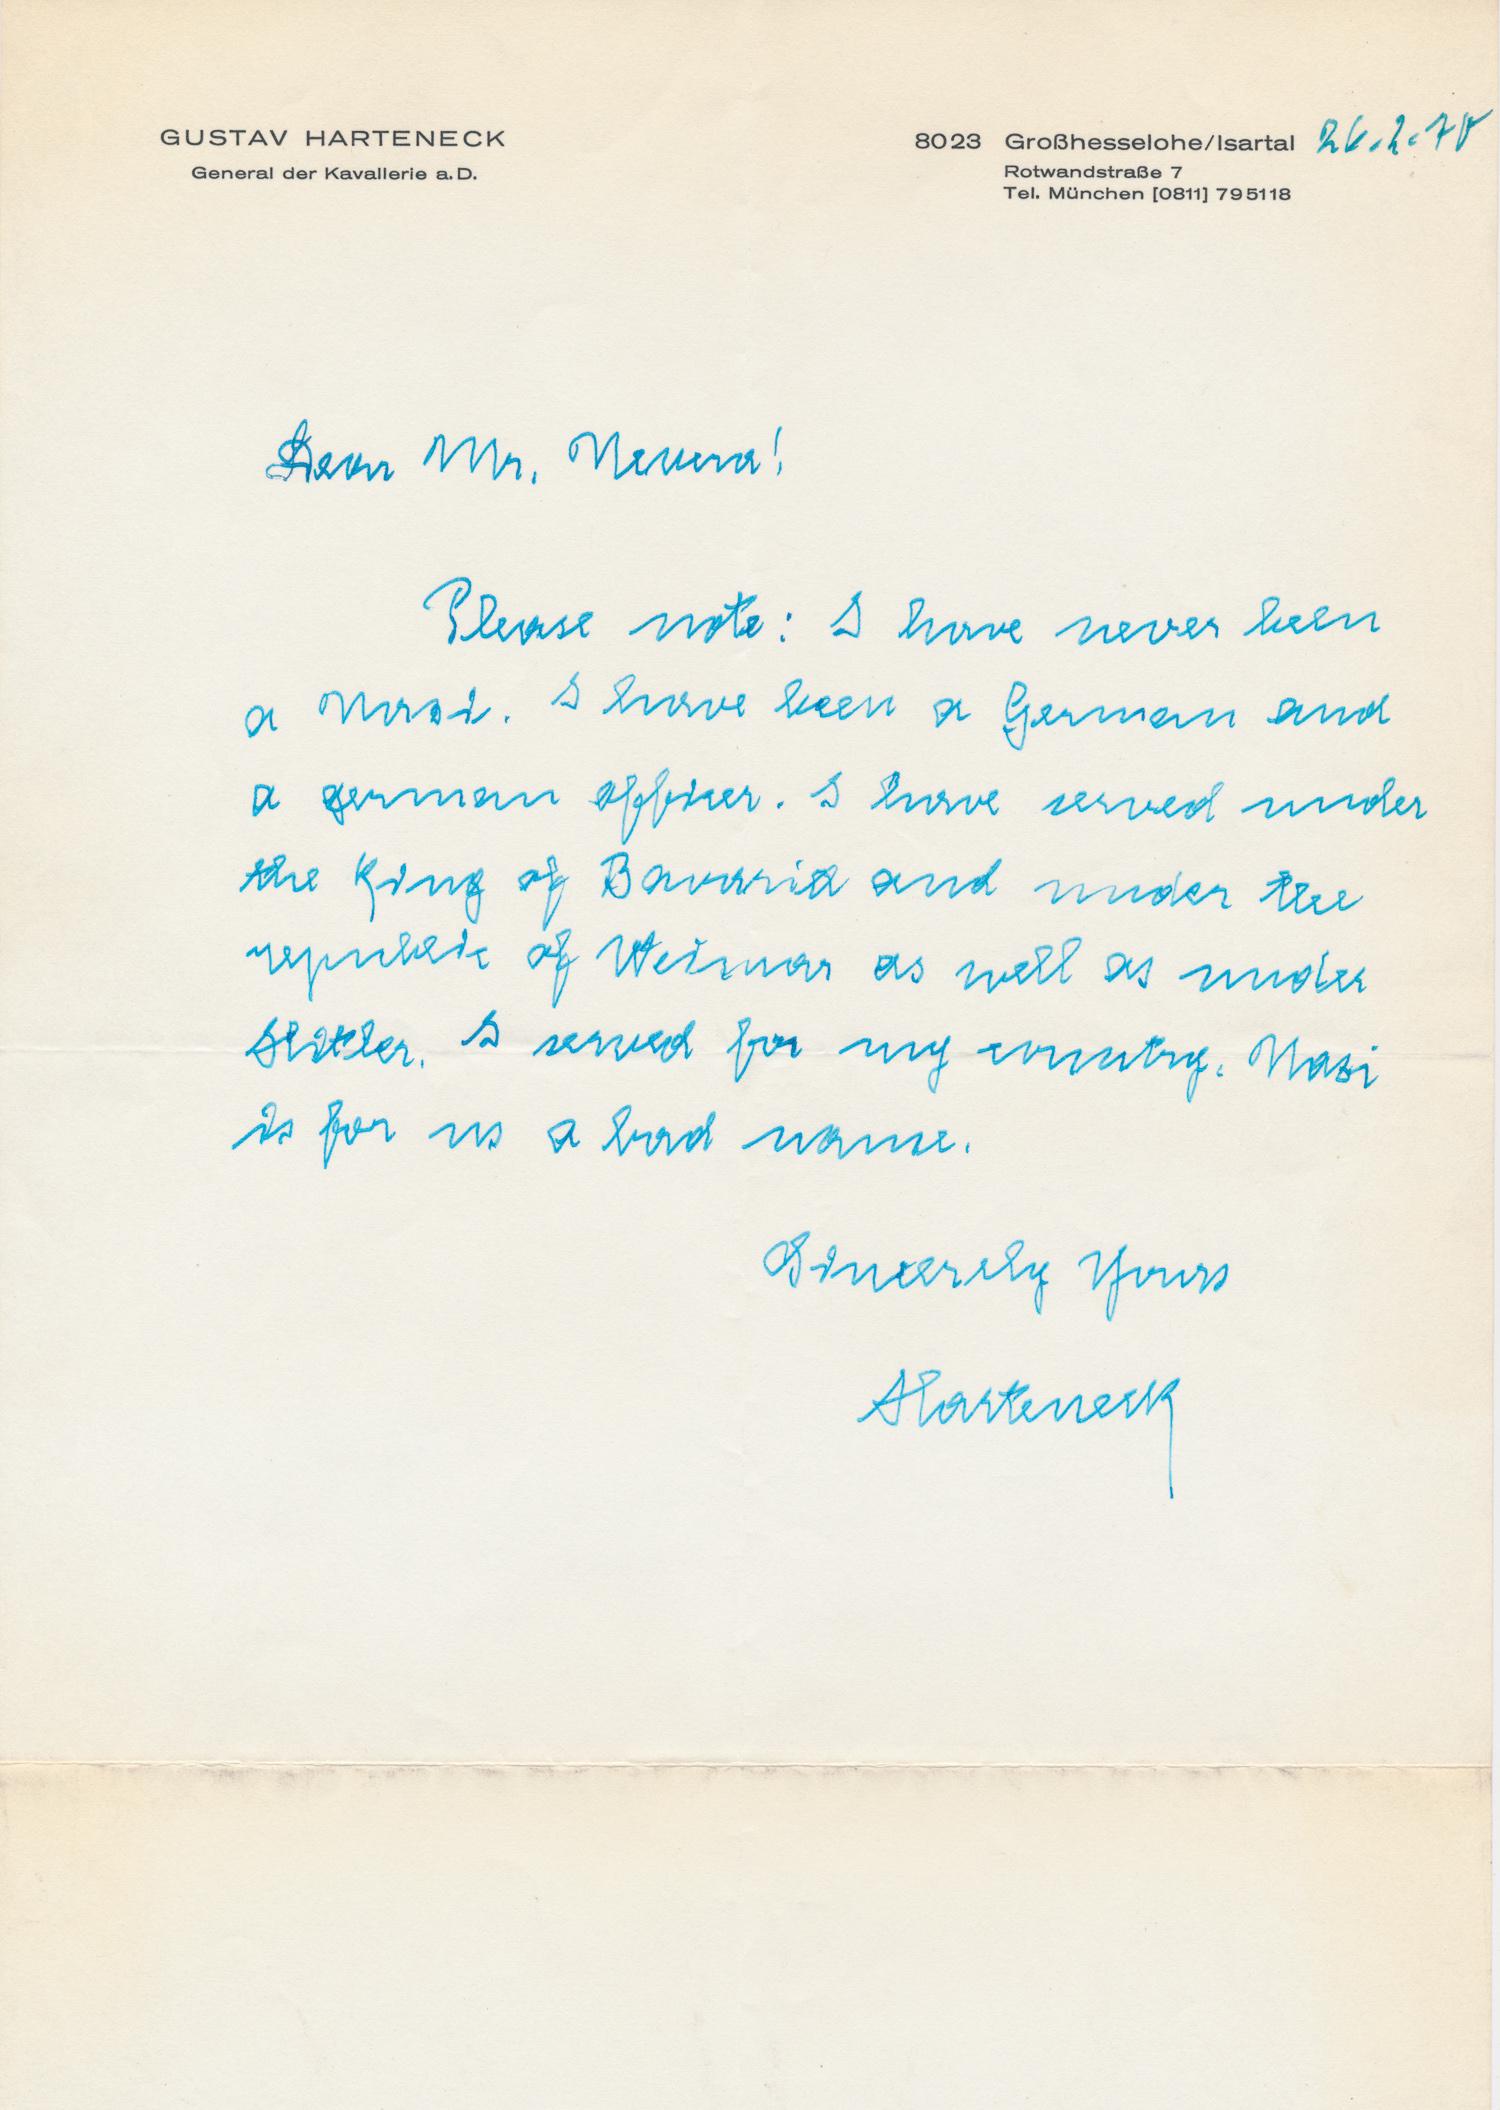 GUSTAV HARTENECK
General der Kavallerie a.D.
8023 Großhesselohe/Isartal
Rotwandstraße 7
Tel. München [0811] 795118
Dear Mr.
Please note: I have never been
a Nazi. I have been a German and
a german officer. I have served under
the King of Bavaria and under the
republic of Weimar as well as under
Hitler. I served for my country. Nazi
is for us a bad name.
Sincerely Yours
Harteneck